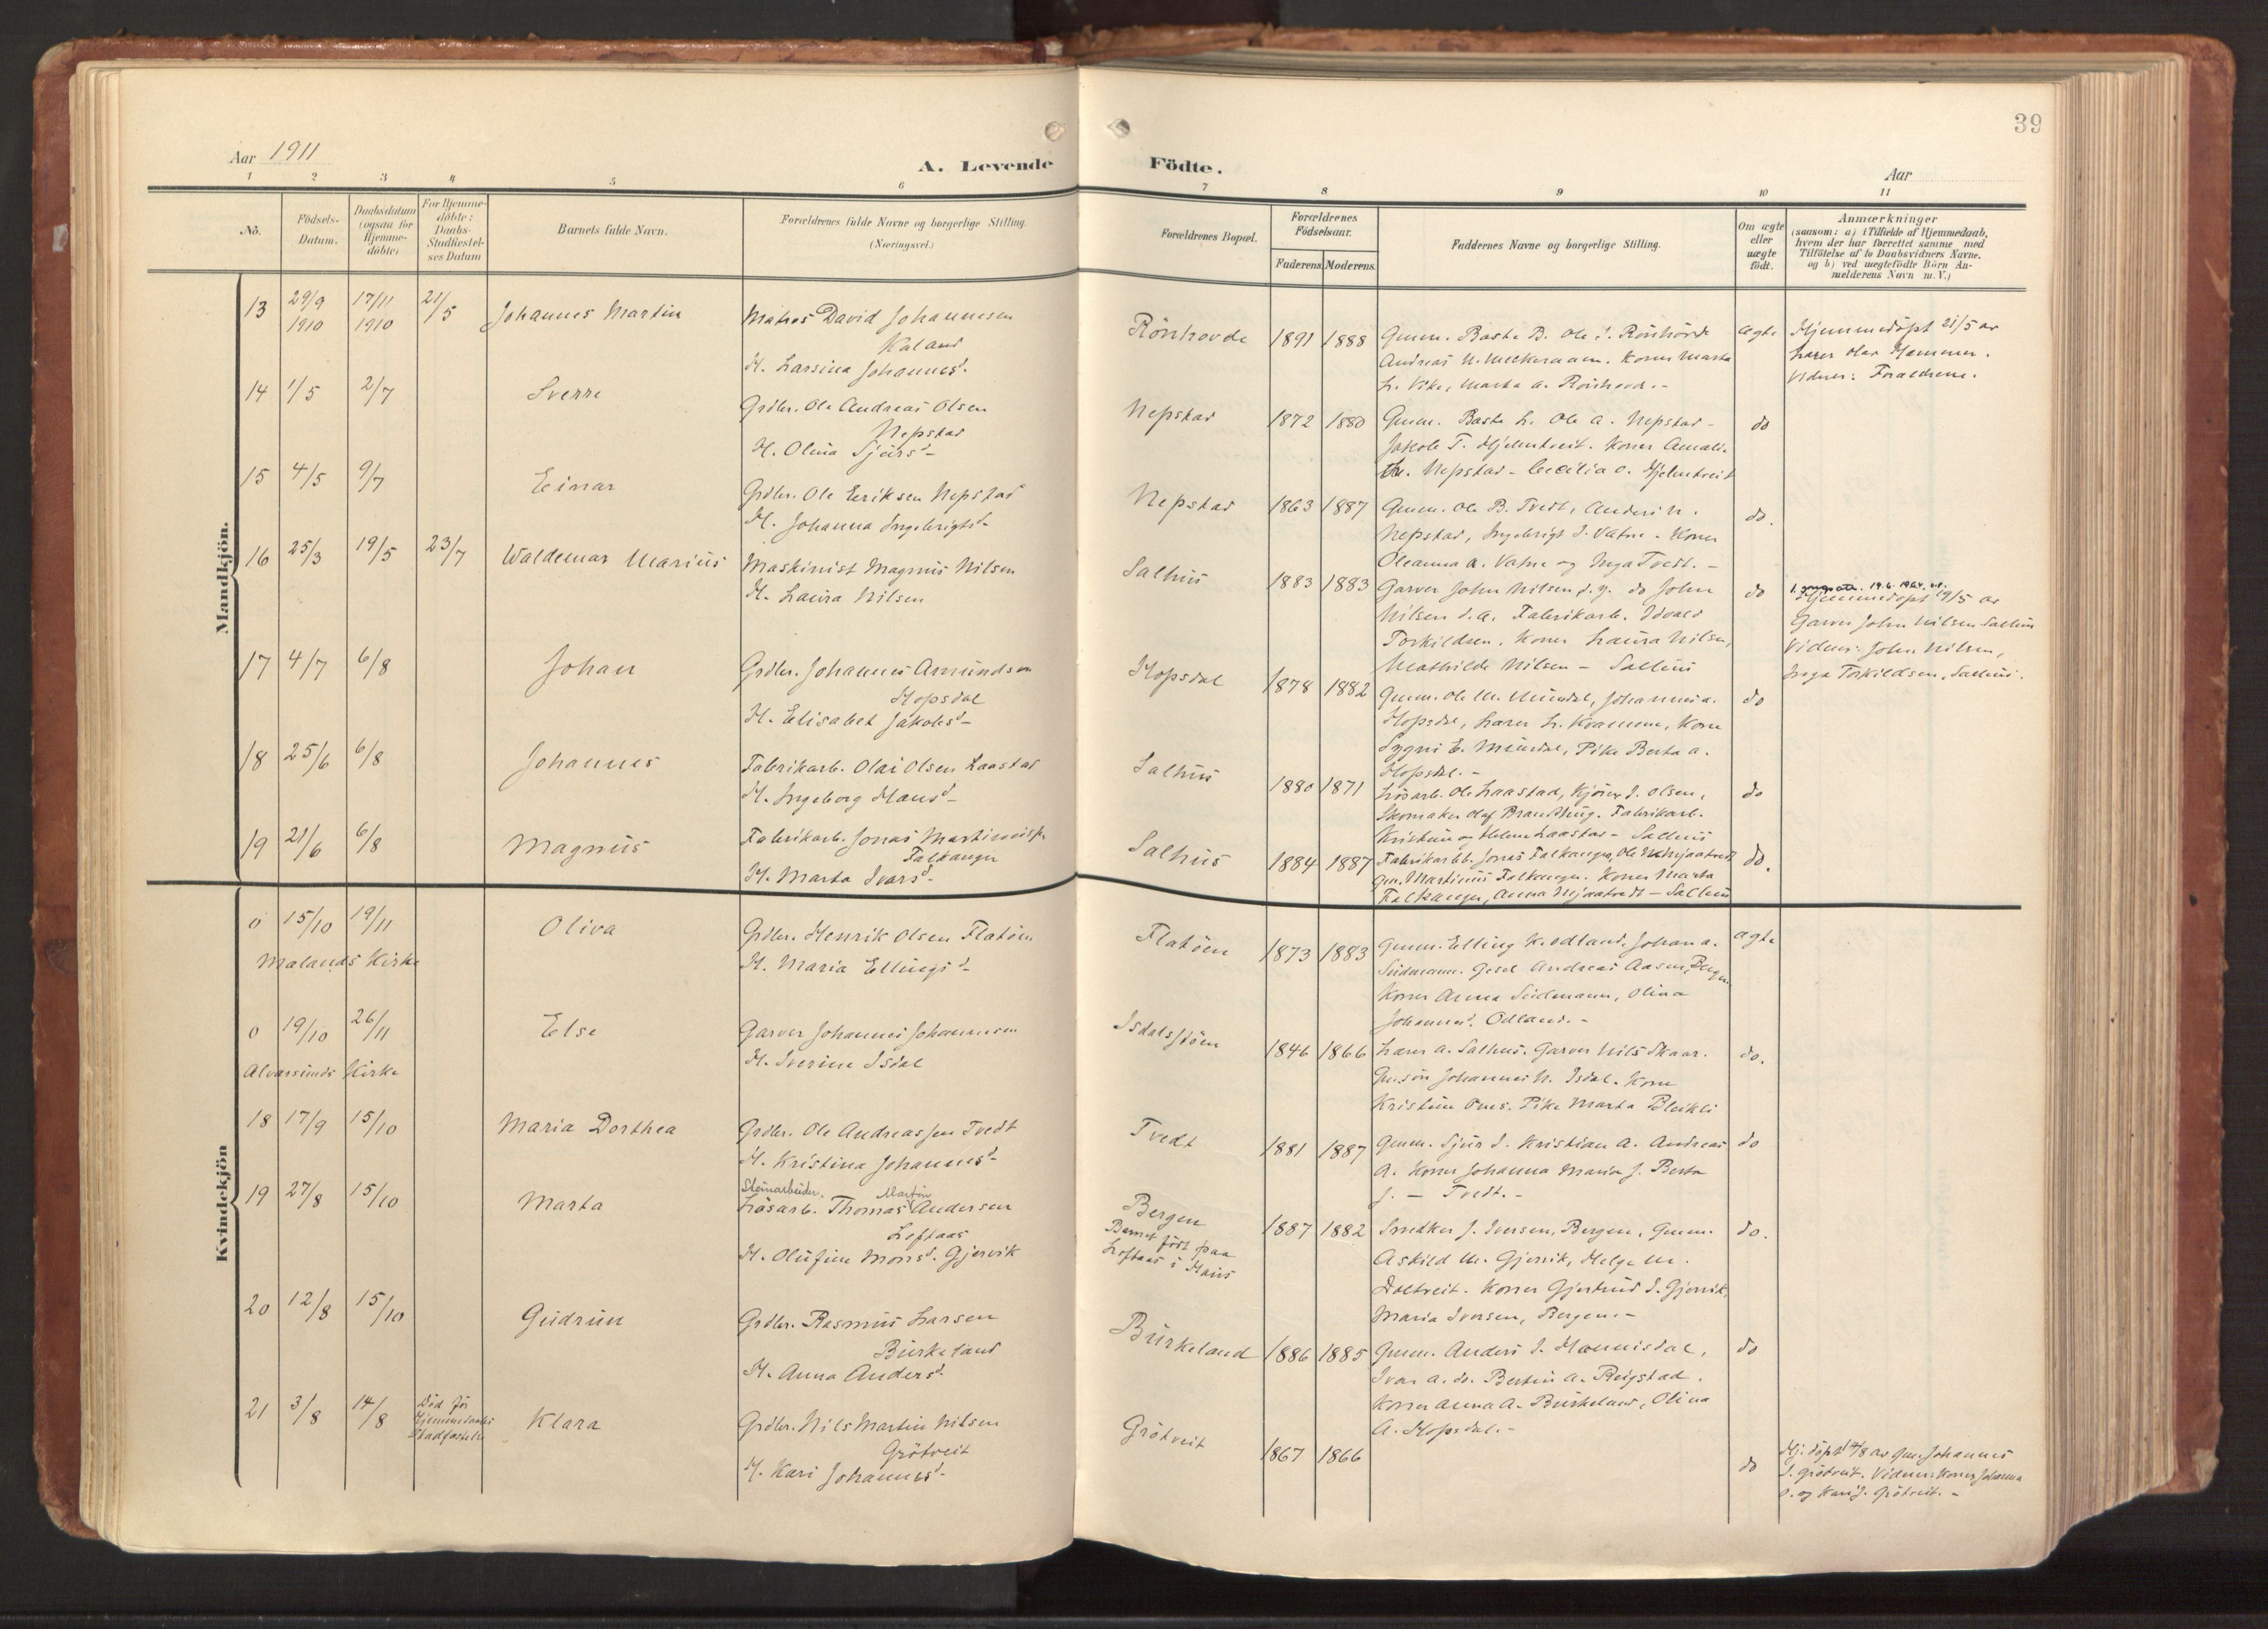 39
Aar 1911
A. Levende Födte.
Aar
1 2 3 4 5 6 7 8 9 10 11
No.
Födsels-
Datum.
Daabsdatum
(ogsaa for
Hjemme-
döbte)
For Hjemme-
döbte:
Daabs-
Stadfæstel-
ses Datum
Barnets fulde Navn.
Forældrenes fulde Navne og borgerlige Stilling.
(Næringsvei.)
Forældrenes Bopæl.
Forældrenes
Födselsaar.
Faderens. Moderens.
Faddernes Navne og borgerlige Stilling.
Om ægte
eller
uægte
födt.
Anmærkninger
(saasom: a) i Tilfælde af Hjemmedaab,
hvem der har forrettet samme med
Tilföielse af to Daabsvidners Navne.
og b) ved uægtefödte Börn An-
melderens Navn m. V.)
Mandkjön.
13 29/9 1910 17/11 1910 21/5 Johannes Martin
Matros David Johannesen
Kaland
H. Larsina Johannesd.
Rönhovde 1891 1888
Gmm. Baste B. Ole
Andreas N. Koner Marta
L. Vike, Marta A.
ægte
Hjemmedöpt 21/5 av
Lærer Olav Hammer.
Vidner: Forældrene.
14 1/5 2/7 Sverre
Grdbr. Ole Andreas Olsen
Nepstad
H. Olina Sjursd-
Nepstad 1872 1880
Gmm. Baste L. Ole A. Nepstad-
Jakob T. Hjelmtveit. Koner Amalie
Nepstad- Cecilia O. Hjelmtveit
do
15 4/5 9/7 Einar
Grdbr. Ole Eeriksen Nepstad
H. Johanna Ingebrigtsd-
Nepstad 1863 1887
Gmm. Ole B. Tvedt, Anders N.
Nepstad, Ingebrigt I. Vatne. Koner
Oleanna A. Vatne og Inga Tvedt. -
do.
16 25/3 19/5 23/7 Waldemar Marius
Maskinist Magnus Nilsen
H. Laura Nilsen
Salhus 1883 1883
Garver John Nilsen d.y. do John
Nilsen d.æ. Fabrikarb. Edvald
Torkildsen. Koner Laura Nilsen,
Mathilde Nilsen - Salhus
do
19.6.1964
Hjemmedöpt 19/5 av
Garver John Nilsen Salhus
Vidner: John Nilsen,
Inga Torkildsen, Salhus.
17 4/7 6/8 Johan
Grdbr. Johannes Amundsen
Hopsdal
H. Elisabet Jakobsd-
Hopsdal 1878 1882
Gmm. Ole M. Mundal, Johannes A.
Hopsdal, Lærer L. Kvamme, Kone
Sygni E. Mundal, Pike Berta A.
Hopsdal. -
do
18 25/6 6/8 Johannes
Fabrikarb. Olai Olsen Laastad
H. Ingeborg Hansd-
Salhus 1880 1871
Lösarb. Ole Laastad, J. Olsen,
Skomaker Olaf Fabrikarb.
Kristine og Helene Laastad- Salhus
do
19 21/6 6/8 Magnus
Fabrikarb. Jonas Martinus
Falkanger
H. Marta Ivarsd-
Salhus 1884 1887
Fabrikarb. Jonas Falkanger, Ole Mjaatvedt
Gm. Martinus Falkanger. Koner Marta
Falkanger, Anna Mjaatvedt - Salhus
do.
Kvindekjön
0 15/10 19/11 Oliva
Malands Kirke
Grdbr. Henrik Olsen Flatöen
H. Maria Ellingsd-
Flatöen 1873 1883
Gmm. Elling K. Odland. Johan A.
Sudmann. Gesel Andreas Aasen, Bergen
Koner Anna Sudmann, Olina
Johannesd. Odland. -
ægte
0 19/10 26/11 Else
Alversunds Kirke
Garver Johannes Johannesen
H. Severine Isdal
Isdalstöen 1846 1866
Lærer A. Salhus. Garver Nils Skaar.
Gm.sön Johannes N. Isdal. Kone
Kristine Pike Marta Bleikli
do.
18 17/9 15/10 Maria Dorthea
Grdbr. Ole Andreassen Tvedt
H. Kristina Johannesd-
Tvedt 1881 1887
Gmm. Sjur J. Kristian A. Andreas
A. Koner Johanna Maria J. Berta
J. - Tvedt. -
do
19 27/8 15/10 Marta
Stenarbeider. Martin
Lösarb. Thomas Andersen
Loftaas
H. Olufine Monsd. Gjervik
Bergen
Barnet födt paa
Loftaas i Haus
1887 1882
Snedker J. Iversen, Bergen, Gmm.
Askild M. Gjervik, Helge M.
Koner Gjertrud I. Gjervik,
Maria Iversen, Bergen. -
do.
20 12/8 15/10 Gudrun
Grdbr. Rasmus Larsen
Burkeland
H. Anna Andersd.
Burkeland 1886 1885
Gmm. Anders I. Hannisdal,
Ivar A. do. Bertin A. Reigstad.
Koner Anna A. Burkeland, Olina
A. Hopsdal. -
do
21 3/8 14/8
Död för
Hjemmedaabs
Stadfæstelse
Klara
Grdbr. Nils Martin Nilsen
Grötveit
H. Kari Johannesd-
Grötveit 1867 1866
do
Hj. döpt 14/8 av Gm. Johannes
J. Grötveit. Vidner: Koner Johanna
O. og Kari J. Grötveit. -